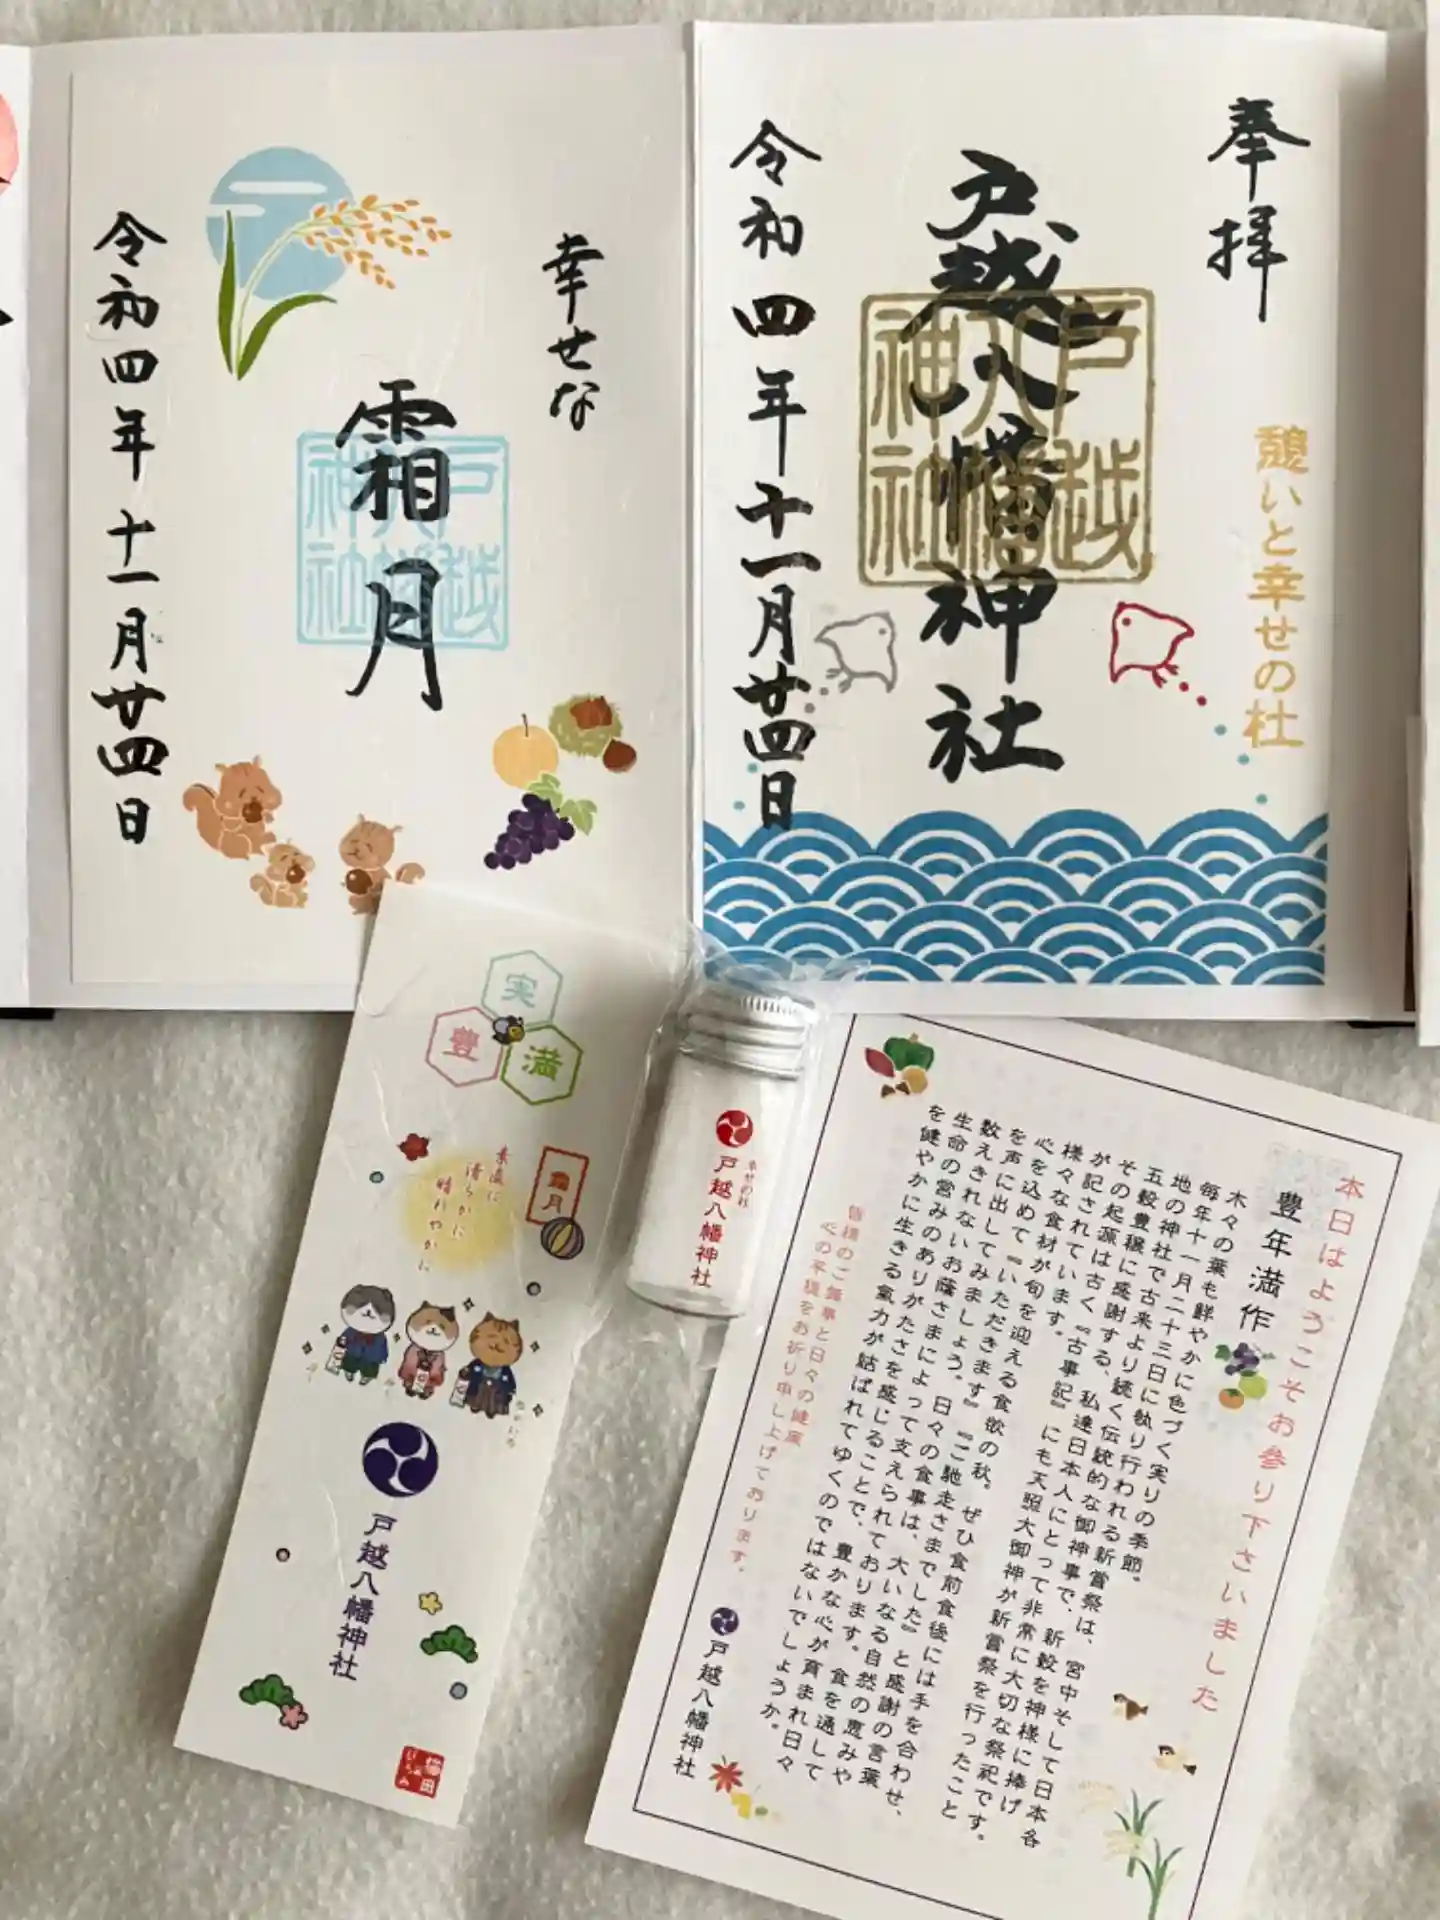 奉拝
戸越八幡神社
戸越
八幡
神社
憩いと幸せの杜
令和四年十一月廿四日
幸せな
霜月
戸越
八幡
神社
令和四年十一月廿四日
実
豊
満
霜月
素直に
清らかに
晴れやかに
戸越八幡神社
幸せの杜
戸越八幡神社
本日はようこそお参り下さいました
豊年満作
木々の葉も鮮やかに色づく実りの季節。
毎年十一月二十三日に執り行われる新嘗祭は、宮中そして日本各
地の神社で古来より続く伝統的な御神事で、新穀を神様に捧げ
五穀豊穣に感謝する、私達日本人にとって非常に大切な祭祀です。
その起源は古く『古事記』にも天照大御神が新嘗祭を行ったこと
が記されています。
様々な食材が旬を迎える食欲の秋。ぜひ食前食後には手を合わせ、
心を込めて『いただきます』『ご馳走さまでした』と感謝の言葉
を声に出してみましょう。日々の食事は、大いなる自然の恵みや
数えきれないお蔭さまによって支えられております。食を通して
生命の営みのありがたさを感じることで、豊かな心が育まれ日々
を健やかに生きる氣力が結ばれてゆくのではないでしょうか。
皆様のご無事と日々の健康
心の平穏をお祈り申し上げております。
戸越八幡神社